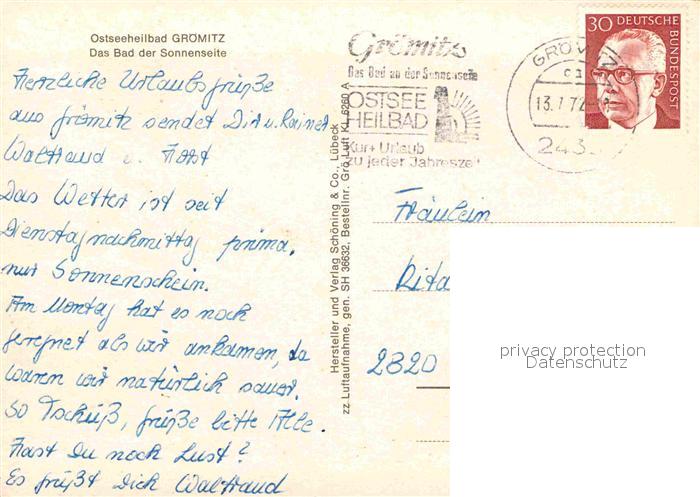 Ostseeheilbad GRÖMITZ
Das Bad der Sonnenseite
Herzliche Urlaubsgrüße
aus Grömitz sendet Dir u. Rainer
Waltraud u. Horst
Das Wetter ist seit
Dienstagnachmittag prima,
nur Sonnenschein.
Am Montag hat es noch
geregnet als wir ankamen, da
waren wir natürlich sauer.
So Tschüß, grüße bitte Alle.
Hast Du noch Lust?
Es grüßt Dich Waltraud
Hersteller und Verlag Schöning & Co., Lübeck
zz Luftaufnahme, gen. SH 36632, Bestellnr. Grö Luft KL 6260 A
Grömitz
Das Bad an der Sonnenseite
OSTSEE
HEILBAD
Kur + Urlaub
zu jeder Jahreszeit
GRÖMITZ
13.7.72
243
30 DEUTSCHE
BUNDESPOST
Fräulein
Rita
2820
privacy protection
Datenschutz